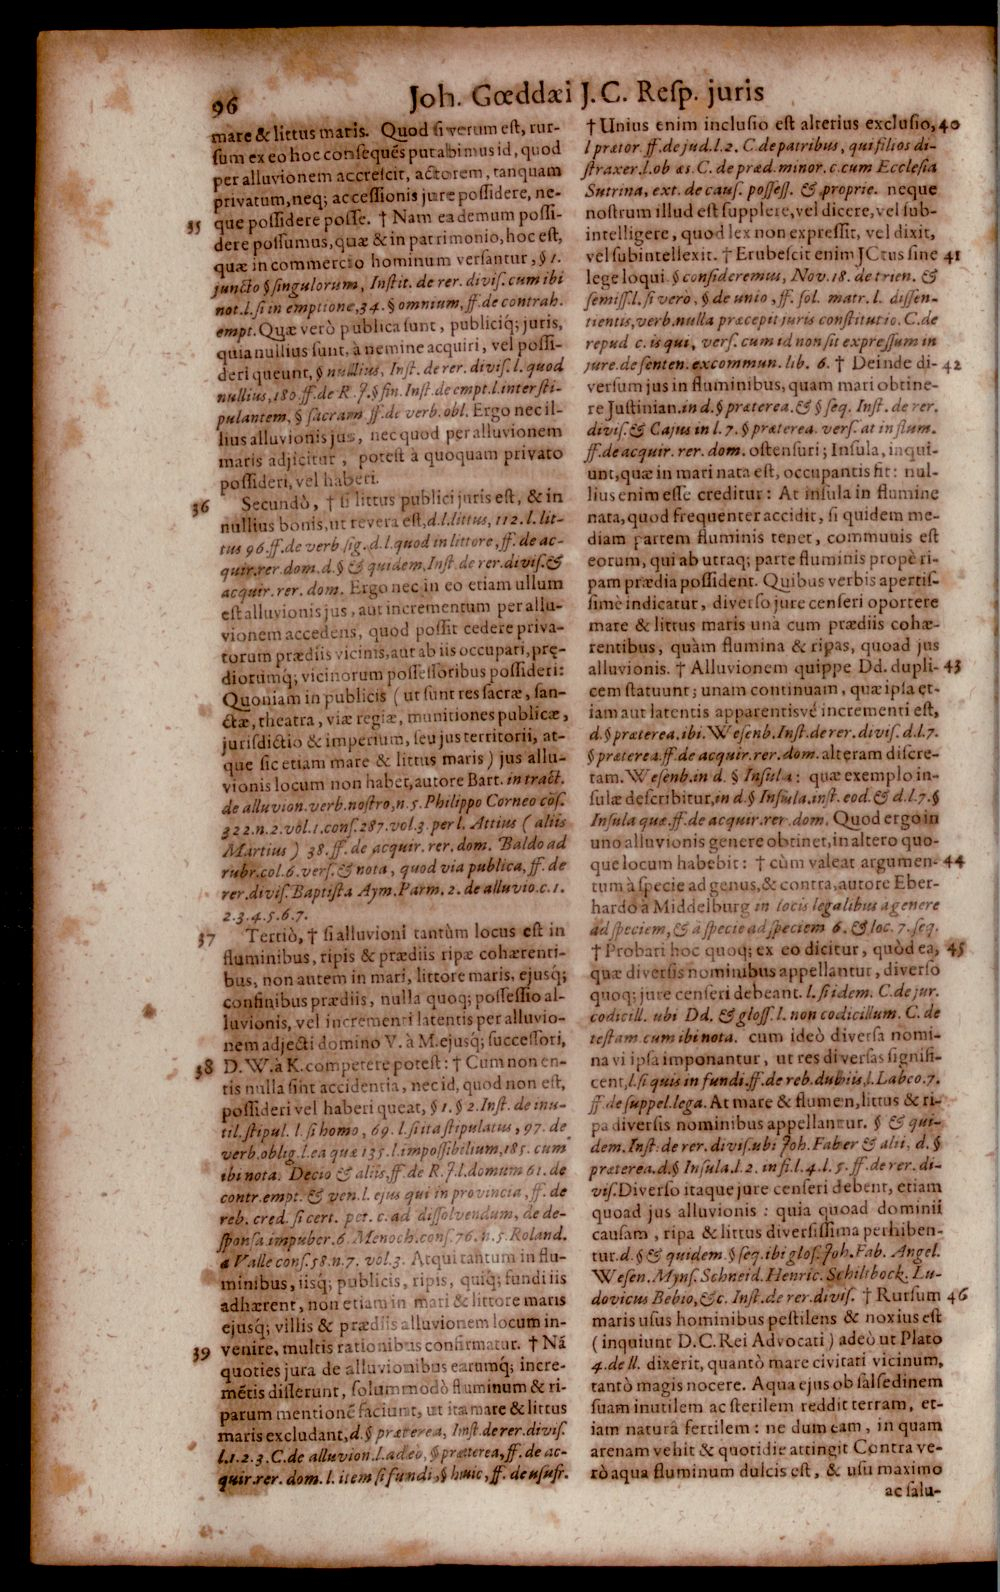 96
Joh. Gœddæi J. C. Resp. juris
mare & littus maris. Quod si verum est, rur-
sum ex eo hoc consequēs putabimus id, quod
per alluvionem accrescit, actorem, tanquam
privatum, neq; accessionis jure possidere, ne-
35 que possidere posse. † Nam ea demum possi-
dere possumus, quæ & in patrimonio, hoc est,
quæ in commercio hominum versantur, § 1.
juncto § singulorum, Instit. de rer. divis. cum ibi
not. l. si in emptione, 34. § omnium, ff. de contrah.
empt. Quæ verò publica sunt, publiciq; juris,
quia nullius sunt, à nemine acquiri, vel possi-
deri queunt, § nullius, Inst. de rer. divis. l. quod
nullius, 180. ff. de R. J. § fin. Inst. de empt. l. inter sti-
pulantem. § sacram ff. de verb. obl. Ergo nec il-
lius alluvionis jus, nec quod per alluvionem
maris adjicitur, potest à quoquam privato
possideri, vel haberi.
36 Secundò, † si littus publici juris est, & in
nullius bonis, ut revera est, d. l. littus, 112. l. lit-
tus 96. ff. de verb. sig. d. l. quod in littore, ff. de ac-
quir. rer. dom. d. § & quidem, Inst. de rer. divis. &
acquir. rer. dom. Ergo nec in eo etiam ullum
est alluvionis jus, aut incrementum per allu-
vionem accedens, quod possit cedere priva-
torum prædiis vicinis, aut ab iis occupari, prę-
diorumq; vicinorum possessoribus possideri:
Quoniam in publicis (ut sunt res sacræ, san-
ctæ, theatra, viæ regiæ, munitiones publicæ,
jurisdictio & imperium, seu jus territorii, at-
que sic etiam mare & littus maris) jus allu-
vionis locum non habet, autore Bart. in tract.
de alluvion. verb. nostro, n. 5. Philippo Corneo cōs.
322. n. 2. vol. 1. cons. 287. vol. 3. per l. Attius (aliis
Martius) 38. ff. de acquir. rer. dom. Baldo ad
rubr. col. 6. vers. & nota, quod via publica, ff. de
rer. divis. Baptista Aym. Parm. 2. de alluvio. c. 1.
2. 3. 4. 5. 6. 7.
37 Tertiò, † si alluvioni tantùm locus est in
fluminibus, ripis & prædiis ripæ cohærenti-
bus, non autem in mari, littore maris, ejusq;
confinibus prædiis, nulla quoq; possessio al-
luvionis, vel incrementi latentis per alluvio-
nem adjecti domino V. à M. ejusq; successori,
38 D. W. à K. competere potest: † Cum non en-
tis nulla sint accidentia, nec id, quod non est,
possideri vel haberi queat, § 1. § 2. Inst. de inu-
til. stipul. l. si homo, 69. l. si ita stipulatus, 97. de
verb. oblig. l. ea quæ 135. l. impossibilium, 185. cum
ibi nota. Decio & aliis, ff. de R. J. l. domum 61. de
contr. empt. & ven. l. ejus qui in provincia, ff. de
reb. cred. si cert. pet. c. ad dissolvendum, de de-
sponsa impuber. 6. Menoch. cons. 76. n. 5. Roland.
a Valle cons. 58. n. 7. vol. 3. Atqui tantum in flu-
minibus, iisq; publicis, ripis, quiq; fundi iis
adhærent, non etiam in mari & littore maris
ejusq; villis & prædiis alluvionem locum in-
39 venire, multis rationibus confirmatur. † Nā
quoties jura de alluvionibus earumq; incre-
mētis disserunt, solummodò fluminum & ri-
parum mentionē faciunt, ut ita mare & littus
maris excludant, d. § præterea, Inst. de rer. divis.
l. 1. 2. 3. C. de alluvion. l. adeò, § præterea, ff. de ac-
quir. rer. dom. l. item si fundi, § huic, ff. de usufr.
† Unius enim inclusio est alterius exclusio, 40
l prætor. ff. de jud. l. 2. C. de patribus, qui filios di-
straxer. l. ob æs. C. de præd. minor. c. cum Ecclesia
Sutrina, ext. de caus. possess. & proprie. neque
nostrum illud est supplere, vel dicere, vel sub-
intelligere, quod lex non expressit, vel dixit,
vel subintellexit. † Erubescit enim JCtus sine 41
lege loqui. § consideremus, Nov. 18. de trien. &
semiss. l. si verò, § de unio, ff. sol. matr. l. dissen-
tientis, verb. nulla præcepit juris constitutio. C. de
repud c. is qui, vers. cum id non sit expressum in
jure. de senten. excommun. lib. 6. † Deinde di- 42
versum jus in fluminibus, quam mari obtine-
re Justinian. in d. § præterea. & § seq. Inst. de rer.
divis. & Cajus in l. 7. § præterea. vers. at in flum.
ff. de acquir. rer. dom. ostensuri; Insula, inqui-
unt, quæ in mari nata est, occupantis fit: nul-
lius enim esse creditur: At insula in flumine
nata, quod frequenter accidit, si quidem me-
diam partem fluminis tenet, communis est
eorum, qui ab utraq; parte fluminis propè ri-
pam prædia possident. Quibus verbis apertis-
simè indicatur, diverso jure censeri oportere
mare & littus maris unà cum prædiis cohæ-
rentibus, quàm flumina & ripas, quoad jus
alluvionis. † Alluvionem quippe Dd. dupli- 43
cem statuunt; unam continuam, quæ ipsa et-
iam aut latentis apparentisvé incrementi est,
d. § præterea. ibi. Wesenb. Inst. de rer. divis. d. l. 7.
§ præterea. ff. de acquir. rer. dom. alteram discre-
tam. Wesenb. in d. § Insula: quæ exemplo in-
sulæ describitur, in d. § Insula. inst. eod. & d. l. 7. §
Insula quæ. ff. de acquir. rer. dom. Quod ergo in
uno alluvionis genere obtinet, in altero quo-
que locum habebit: † cùm valeat argumen- 44
tum à specie ad genus, & contra, autore Eber-
hardo à Middelburg in locis legalibus a genere
ad speciem, & a specie ad speciem 6. & loc. 7. seq.
† Probari hoc quoq; ex eo dicitur, quòd ea, 45
quæ diversis nominibus appellantur, diverso
quoq; jure censeri debeant. l. si idem. C. de jur.
codicill. ubi Dd. & gloss. l. non codicillum. C. de
testam. cum ibi nota. cum ideò diversa nomi-
na vi ipsa imponantur, ut res diversas signifi-
cent, l. si quis in fundi. ff. de reb. dubiis, l. Labeo. 7.
ff. de suppel. lega. At mare & flumen, littus & ri-
pa diversis nominibus appellantur. § & qui-
dem. Inst. de rer. divis. ubi Joh. Faber & alii, d. §
præterea. d. § Insula. l. 2. in fi. l. 4. l. 5. ff. de rer. di-
vis. Diverso itaque jure censeri debent, etiam
quoad jus alluvionis: quia quoad dominii
causam, ripa & littus diversissima perhiben-
tur. d. § & quidem. § seq. ibi glos. Joh. Fab. Angel.
Wesen. Myns. Schneid. Henric. Schiltbock. Lu-
dovicus Bebio, &c. Inst. de rer. divis. † Rursum 46
maris usus hominibus pestilens & noxius est
(inquiunt D. C. Rei Advocati) adeò ut Plato
4. de ll. dixerit, quantò mare civitati vicinum,
tantò magis nocere. Aqua ejus ob salsedinem
suam inutilem ac sterilem reddit terram, et-
iam naturâ fertilem: ne dum eam, in quam
arenam vehit & quotidie attingit Contra ve-
rò aqua fluminum dulcis est, & usu maximo
ac salu-